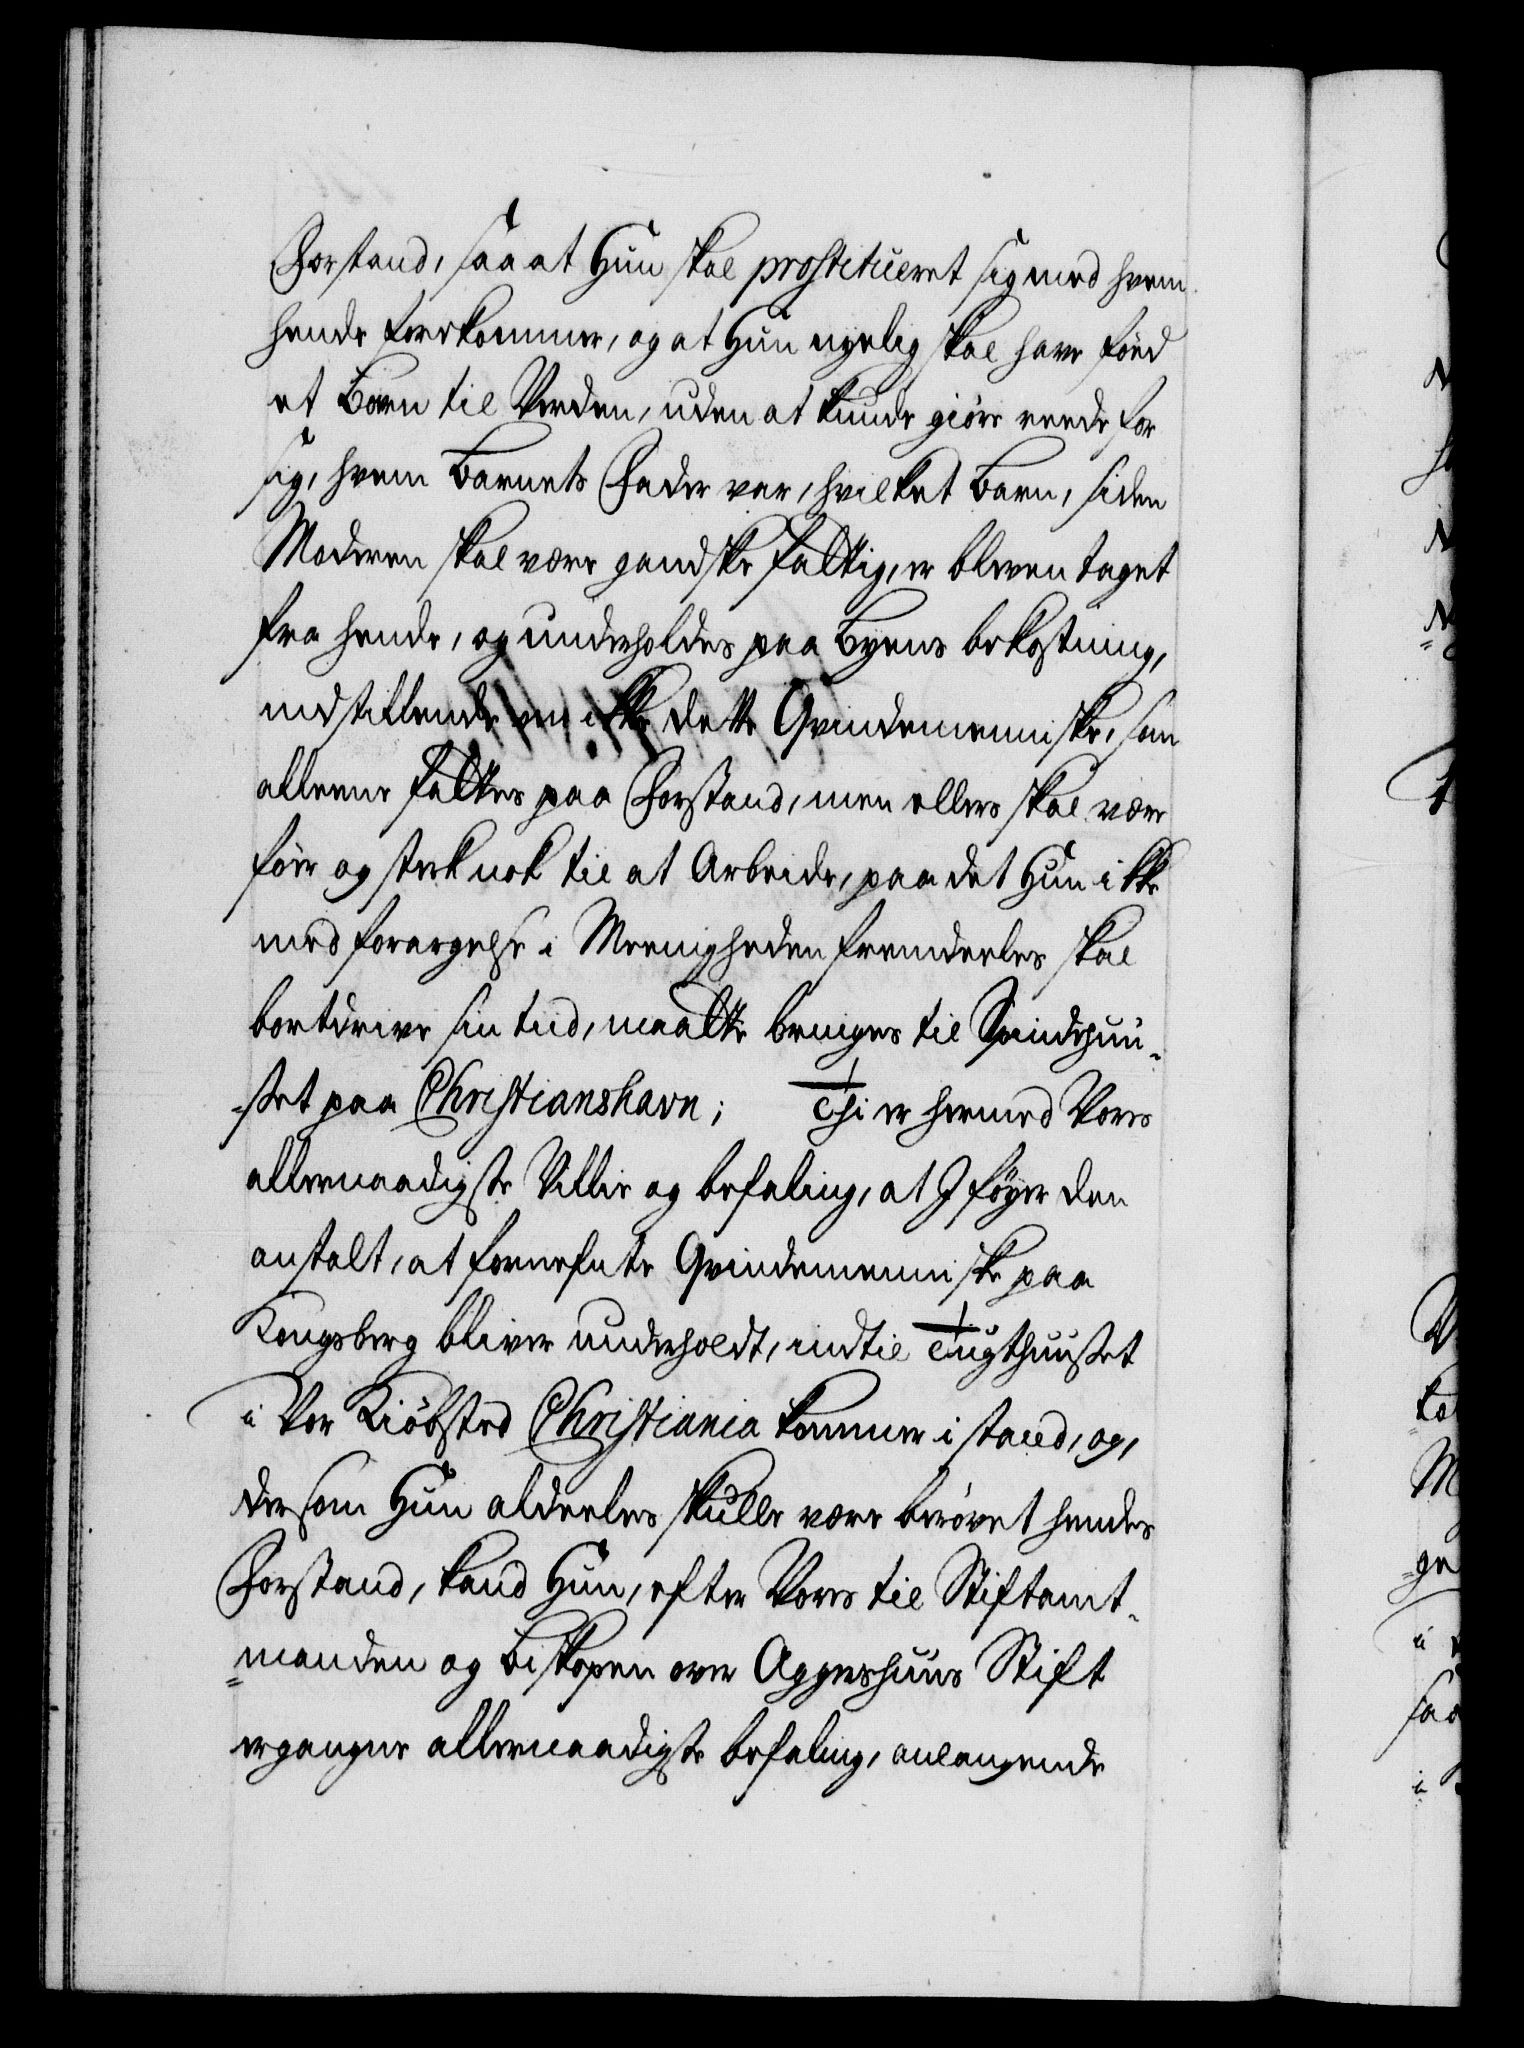 Forstand, saa at Hun skal prostitueret sig med hvem
hende forekommer, og at Hun nyelig skal have föed
et Barn til Verden, uden at kunde giöre reede for
sig, hvem Barnets Fader var, hvilket Barn, siden
Moderen skal være gandske fattig, er bleven taget
fra hende, og underholdes paa Byens bekostning,
indstillende om ikke dette Qvindemenniske, som
alleene fattes paa Forstand, men ellers skal være
före og sterk nok til at Arbeide, paa det Hun ikke
med forargelse i Meenigheden fremdeeles skal
bortdrive sin tiid, maatte bringes til Spindehuu-
-set paa Christianshavn; Thi er hermed Vores
allernaadigste Villie og befaling, at I föyer den
anstalt, at fornefnte Qvindemenniske paa
Kongsberg bliver underholdt, indtil Tugthuuset
i Vor Kiöbsted Christiania kommer i stand, og,
dersom Hun aldeeles skulle være berövet hendes
Forstand, kand Hun, efter Vores til Stiftamt-
=manden og Biskopen over Aggershuus Stift
ergangne allernaadigste befaling, anlangende